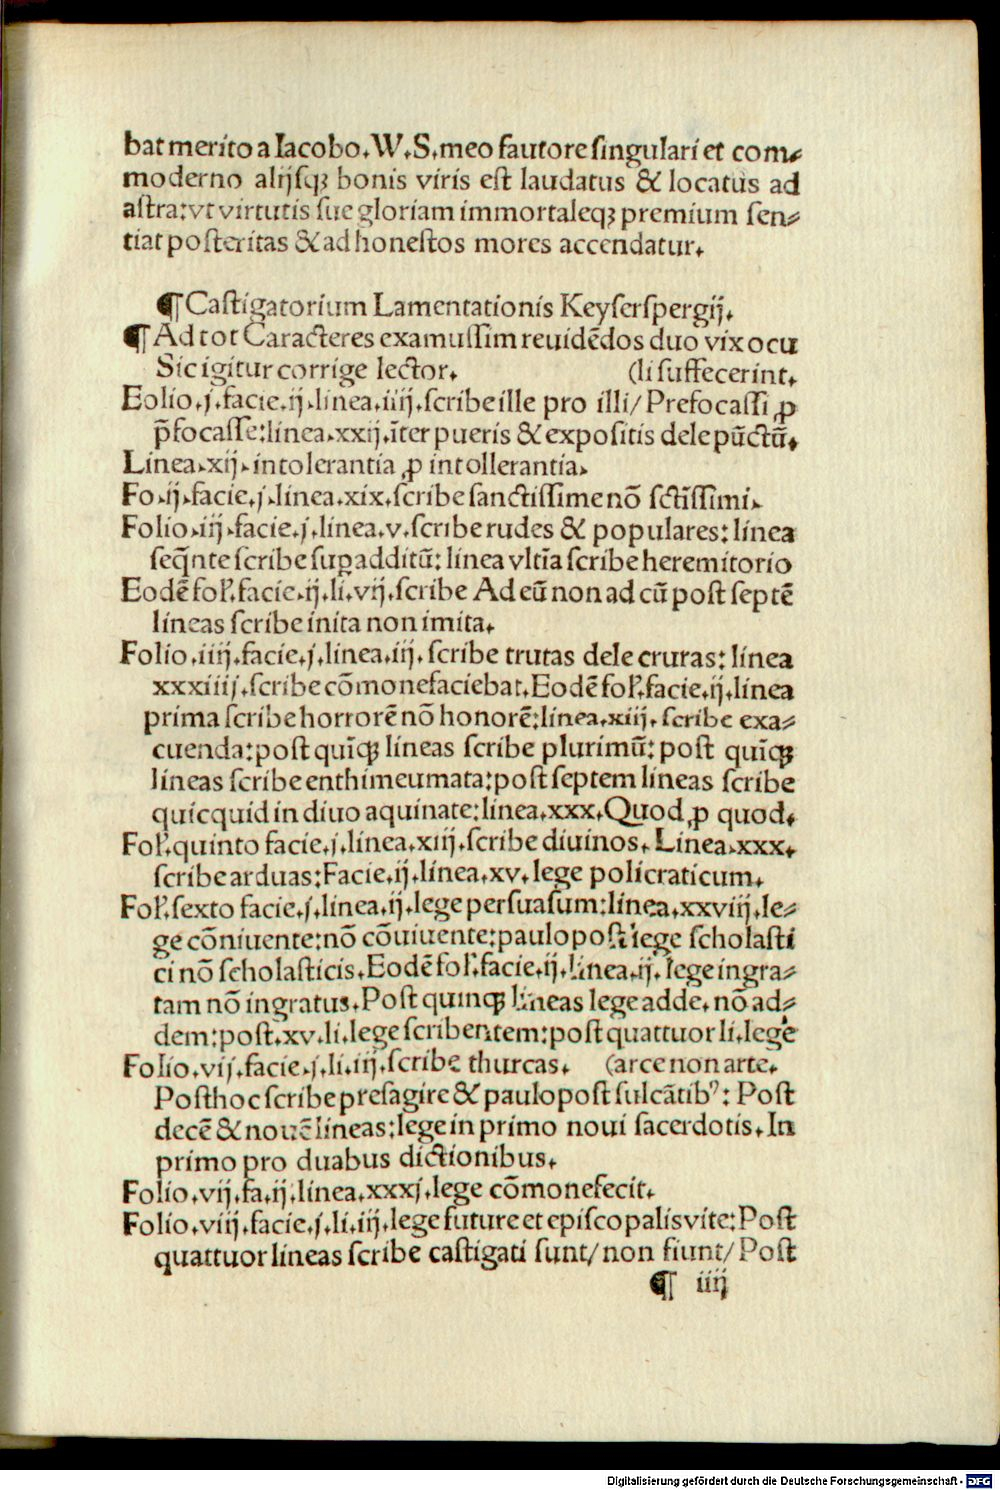 bat merito a Iacobo.W.S.meo fautore singulari et com-
moderno alijsqꝫ bonis viris est laudatus & locatus ad
astra:vt virtutis sue gloriam immortaleqꝫ premium sen-
tiat posteritas & ad honestos mores accendatur.
¶ Castigatorium Lamentationis Keyserspergij.
¶ Ad tot Caracteres examussim reuidēdos duo vix ocu
Sic igitur corrige lector. (li suffecerint.
Eolio.j.facie.ij.linea.iiij.scribe ille pro illi/ Prefocassi ꝓ
p̄focasse:linea.xxij.īter pueris & expositis dele pūctū.
Linea.xij.intolerantia ꝓ intollerantia.
Fo.ij.facie.j.linea.xix.scribe sanctissime nō sctīssimi.
Folio.iij.facie.j.linea.v.scribe rudes & populares: linea
seq̄nte scribe suꝑadditū: linea vltīa scribe heremitorio
Eodē fol̓.facie.ij.li.vij.scribe Ad eū non ad cū post septē
lineas scribe inita non imita.
Folio.iiij.facie.j.linea.iij.scribe trutas dele cruras: linea
xxxiiij.scribe cōmonefaciebat.Eodē fol̓.facie.ij.linea
prima scribe horrorē nō honorē:linea.xiij.scribe exa-
cuenda:post quīqꝫ lineas scribe plurimū: post quīqꝫ
lineas scribe enthimeumata:post septem lineas scribe
quicquid in diuo aquinate:linea.xxx.Quod ꝓ quod.
Fol̓.quinto facie.j.linea.xiij.scribe diuinos. Linea.xxx.
scribe arduas:Facie.ij.linea.xv.lege policraticum.
Fol̓.sexto facie.j.linea.ij.lege persuasum:linea.xxviij.le-
ge cōniuente:nō cōuiuente:paulo post lege scholasti
ci nō scholasticis.Eodē fol̓.facie.ij.linea.ij.lege ingra-
tam nō ingratus.Post quinqꝫ lineas lege adde.nō ad-
dem:post.xv.li.lege scribentem:post quattuor li.lege
Folio.vij.facie.j.li.iij.scribe thurcas. (arce non arte.
Post hoc scribe presagire & paulo post sulcātibꝰ: Post
decē & nouē lineas:lege in primo noui sacerdotis.In
primo pro duabus dictionibus.
Folio.vij.fa.ij.linea.xxxj.lege cōmonefecit.
Folio.viij.facie.j.li.iij.lege future et episcopalis vite:Post
quattuor lineas scribe castigati sunt/ non fiunt/ Post
¶ iiij
Digitalisierung gefördert durch die Deutsche Forschungsgemeinschaft - DFG